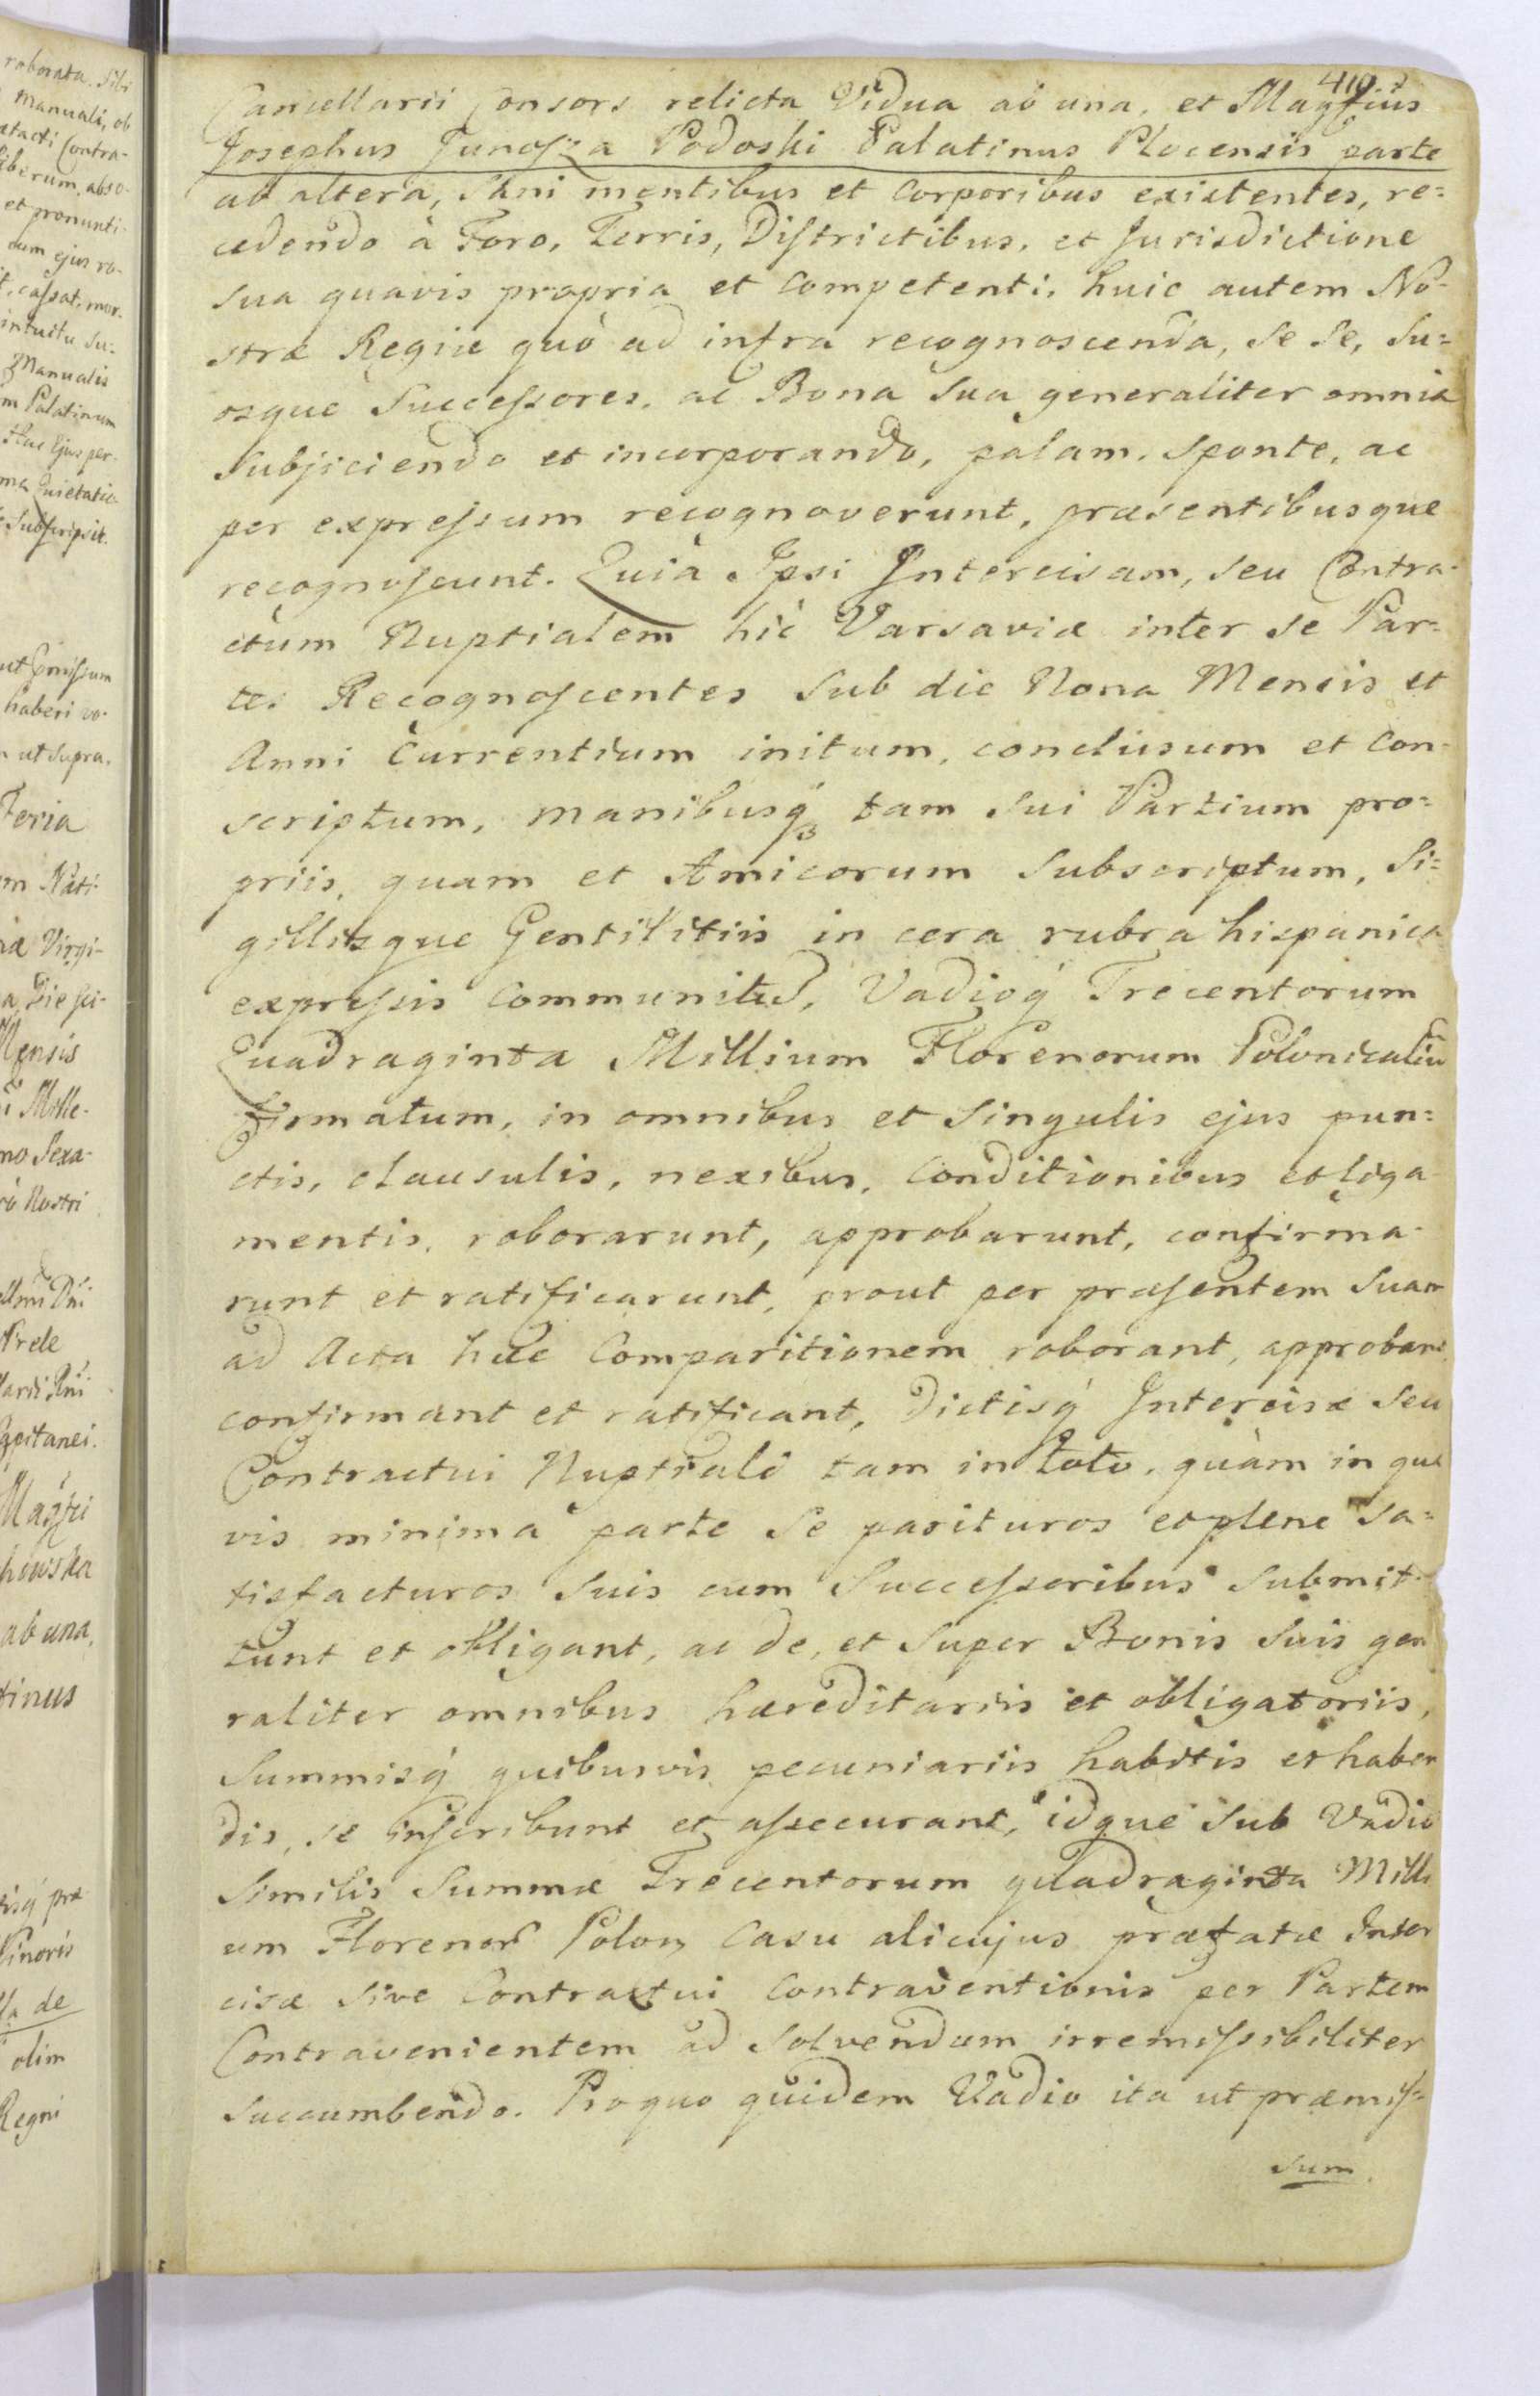 410
Cancellarii Consors relicta Vidua ab una, et Magfius
Josephus Junosza Podoski Palatinus Plocensis parte
ab altera, Sani mentibus et corporibus existentes, re=
cedendo à Foro, Terris, Diſtrictibus, et Jurisdictione
sua quavis propria et competenti, huic autem No-
stræ Regiæ quò ad infra recognoscenda, Se Se, Su=
osque Succeſsores, ac Bona Sua generaliter omnia
Subjiciendo et incorporando, palam, sponte, ac
per expreſsum recognoverunt, præsentibusque
recognoſcunt. Quia Ipsi Intercisam, seu Contra-
ctum Nuptialem hic Varsaviæ inter se Par-
tes Recognoſcentes Sub die Nona Mensis et
Anni Currentium initum, conclusum et con-
scriptum, manibusq́ tam Sui Partium pro=
priis, quam et Amicorum Subscriptum, Si=
gillisque Gentilitiis in cera rubra hispanica
expreſsis communitũ, Vadioq́ Trecentorum
Quadraginta Millium Florenorum Polonicaliũ
firmatum, in omnibus et Singulis ejus pun=
ctis, clausulis, nexibus, Conditionibus et liga
mentis, roborarunt, approbarunt, confirma-
runt et ratificarunt, prout per præſentem Suam
ad Acta hæc Comparitionem roborant, approbant
confirmant et ratificant, Dictisq́ Intercisæ Seu
Contractui Nuptiali tam in toto, quàm in qua
vis minima parte Se parituros et plene Sa=
tisfacturos Suis cum Succeſsoribus Submit-
tunt et obligant, ac de, et Super Bonis Suis gen
raliter omnibus hæreditariis et obligatoriis,
Summisq́ quibusvis pecuniariis habitis et haben
dis, se inſcribunt et aſsecurant, idque Sub Vadio
Similis Summæ Trecentorum quadraginta Milli
um Florenor Polon Casu alicujus præfatæ Inter
cisæ Sive Contractui Contraventionis per Partem
Contravenientem ad Solvendum irremiſsibiliter
Succumbendo. Pro quo quidem Vadio ita ut præmiſ=
Sum
roborata. Sibi
Manuali, ob
Contra-
liberum, abso-
et pronunti-
dum ejus ro-
caſsat, mor-
intuitu Su-
Manualis
Palatinum
Ejus per-
Quietatio
Subſcripsit.
haberi vo-
ut Supra.
Feria
Nati-
Virgi-
Mensis
Mille-
Sexa-
Nostri
Magfci
ab una,
olim
Regni